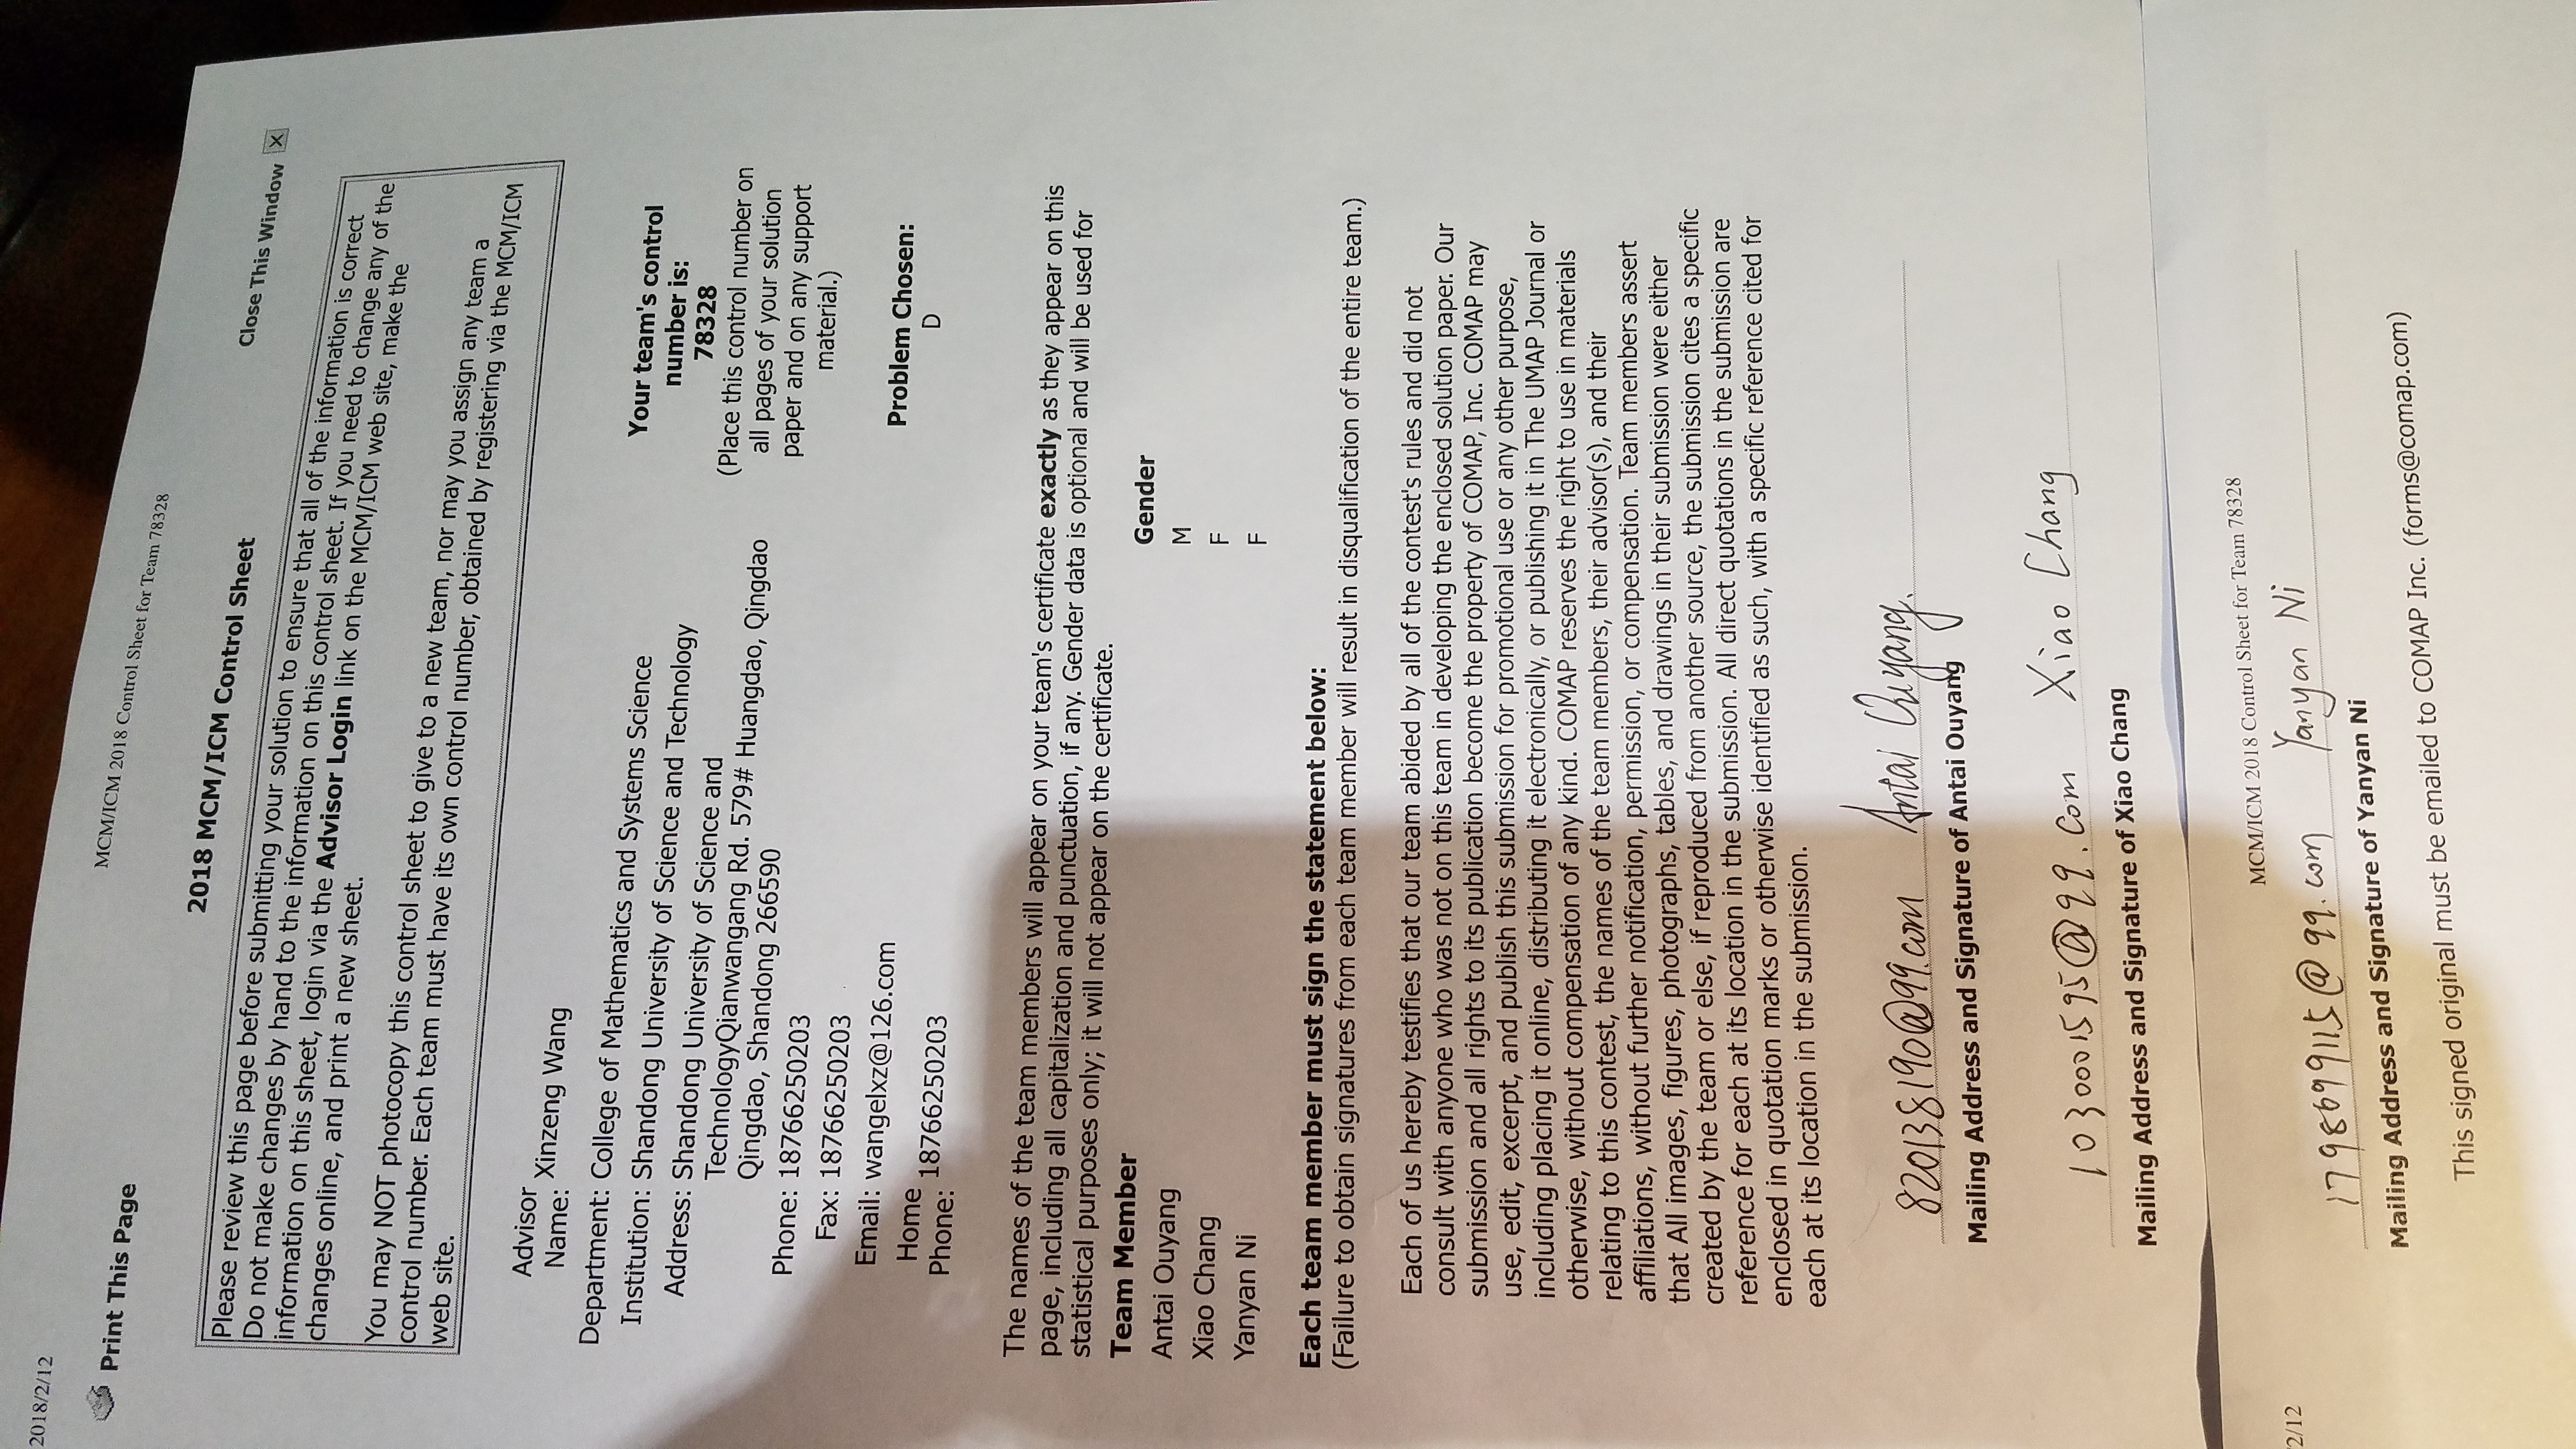 2018/2/12
MCM/ICM 2018 Control Sheet for Team 78328
Print This Page
Close This Window X
2018 MCM/ICM Control Sheet
Please review this page before submitting your solution to ensure that all of the information is correct
Do not make changes by hand to the information on this control sheet. If you need to change any of the
information on this sheet, login via the Advisor Login link on the MCM/ICM web site, make the
changes online, and print a new sheet.
You may NOT photocopy this control sheet to give to a new team, nor may you assign any team a
control number. Each team must have its own control number, obtained by registering via the MCM/ICM
web site.
Advisor
Name: Xinzeng Wang
Department: College of Mathematics and Systems Science
Institution: Shandong University of Science and Technology
Address: Shandong University of Science and
TechnologyQianwangang Rd. 579# Huangdao, Qingdao
Qingdao, Shandong 266590
Phone: 18766250203
Fax: 18766250203
Email: wangelxz@126.com
Home
Phone: 18766250203
Your team's control
number is:
78328
(Place this control number on
all pages of your solution
paper and on any support
material.)
Problem Chosen:
D
The names of the team members will appear on your team's certificate exactly as they appear on this
page, including all capitalization and punctuation, if any. Gender data is optional and will be used for
statistical purposes only; it will not appear on the certificate.
Team Member Gender
Antai Ouyang M
Xiao Chang F
Yanyan Ni F
Each team member must sign the statement below:
(Failure to obtain signatures from each team member will result in disqualification of the entire team.)
Each of us hereby testifies that our team abided by all of the contest's rules and did not
consult with anyone who was not on this team in developing the enclosed solution paper. Our
submission and all rights to its publication become the property of COMAP, Inc. COMAP may
use, edit, excerpt, and publish this submission for promotional use or any other purpose,
including placing it online, distributing it electronically, or publishing it in The UMAP Journal or
otherwise, without compensation of any kind. COMAP reserves the right to use in materials
relating to this contest, the names of the team members, their advisor(s), and their
affiliations, without further notification, permission, or compensation. Team members assert
that All images, figures, photographs, tables, and drawings in their submission were either
created by the team or else, if reproduced from another source, the submission cites a specific
reference for each at its location in the submission. All direct quotations in the submission are
enclosed in quotation marks or otherwise identified as such, with a specific reference cited for
each at its location in the submission.
820138190@qq.com Antai Ouyang.
Mailing Address and Signature of Antai Ouyang
1030001595@qq.com Xiao Chang
Mailing Address and Signature of Xiao Chang
2/12
MCM/ICM 2018 Control Sheet for Team 78328
1798699115@qq.com Yanyan Ni
Mailing Address and Signature of Yanyan Ni
This signed original must be emailed to COMAP Inc. (forms@comap.com)